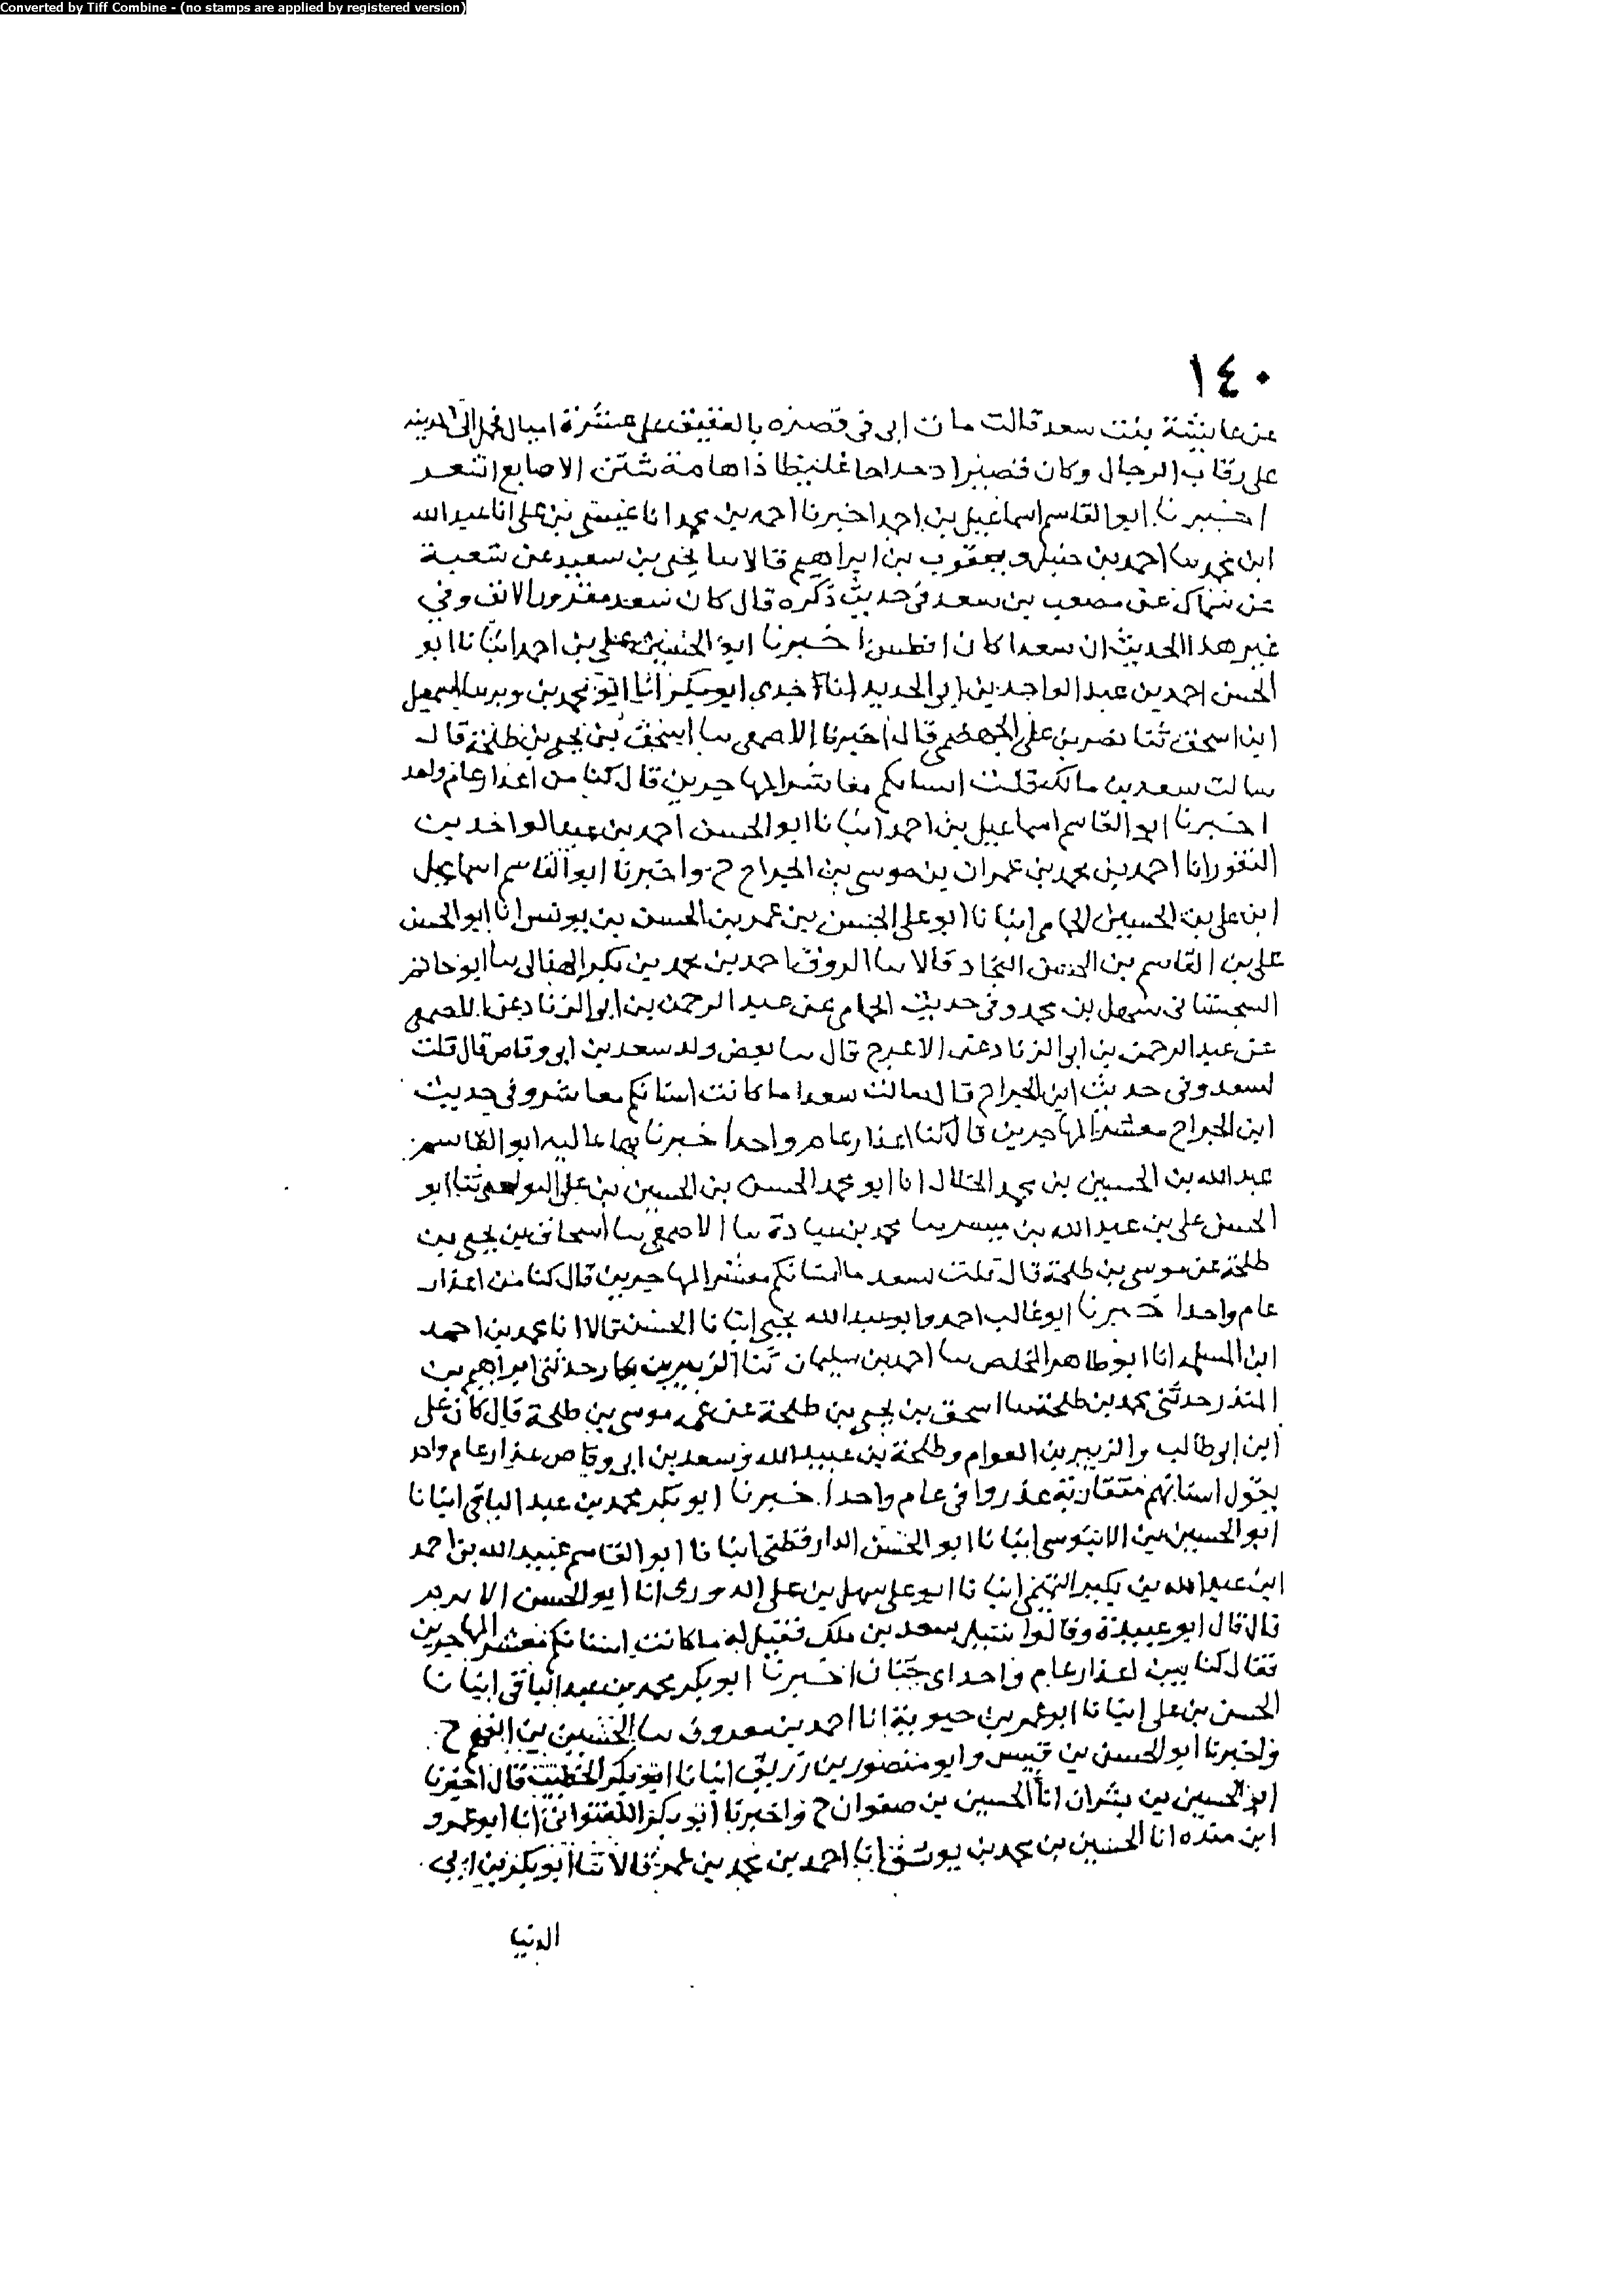 Converted by Tiff Combine - (no stamps are applied by registered version)
١٤٠
عن عايشة بنت سعد قالت مات ابى فى قصره بالعقيق على عشرة اميال فحمل الى المدينه
على رقاب الرجال وكان قصيرا دحداحا غليظا ذا هامة شثن الاصابع اشعر
اخبرنا ابو القاسم اسماعيل بن احمد اخبرنا احمد بن محمد انا عيسى بن على انا عبد الله
ابن محمد سا احمد بن حنبل و يعقوب بن ابراهيم قالا سا يحيى بن سعيد عن شعبة
عن سماك عن مصعب بن سعد فى حديث ذكره قال كان سعد مفزور الانف وفي
غير هذا الحديث ان سعدا كان افطس اخبرنا ابو الحسن على بن احمد انبانا ابو
الحسن احمد بن عبد الواحد بن ابى الحديد انا جدى ابو بكر انا ابو محمد بن زبر سا اسمعيل
ابن اسحق ثنا نصر بن على الجهضمى قال اخبرنا الاصمعى سا اسحق بن يحيى بن طلحة قال
سالت سعد بن مالك قلت اسنانكم معاشر المهاجرين قال كنا من اعذار عام واحد
اخبرنا ابو القاسم اسماعيل بن احمد انبانا ابو الحسن احمد بن عبد الواحد بن
النقور انا احمد بن محمد بن عمران بن موسى بن الجراح ح واخبرنا ابو القاسم اسماعيل
ابن على بن الحسين الحمامى انبانا ابو على الحسن بن عمر بن الحسن بن يونس انا ابو الحسن
على بن القاسم بن الحسن النجاد قالا سا ابو روق احمد بن محمد بن بكر الهزانى سا ابو حاتم
السجستانى سهل بن محمد وفى حديث الحمامى عن عبد الرحمن بن ابى الزناد عن الاصمعى
عن عبد الرحمن بن ابى الزناد عن الاعرج قال سا بعض ولد سعد بن ابى وقاص قال قلت
لسعد وفى حديث ابن الجراح قال سالت سعدا ما كانت اسنانكم معاشر وفى حديث
ابن الجراح معشر المهاجرين قال كنا اعذار عام واحد اخبرنا بها عاليه ابو القاسم
عبد الله بن الحسين بن محمد الخلال انا ابو محمد الحسن بن الحسين بن على ثنا ابو
الحسن على بن عبد الله بن مبشر سا محمد بن عبادة سا الاصمعى سا اسحاق بن يحيى بن
طلحة عن موسى بن طلحة قال قلت لسعد ما اسنانكم معشر المهاجرين قال كنا من اعذار
عام واحد اخبرنا ابو غالب احمد وابو عبد الله يحيى ابنا الحسن قالا انا محمد بن احمد
ابن المسلمه انا ابو طاهر المخلص سا احمد بن سليمان ثنا الزبير بن بكار حدثنى ابراهيم بن
المنذر حدثنى محمد بن طلحة سا اسحق بن يحيى بن طلحة عن عمه موسى بن طلحة قال كان على
ابن ابى طالب والزبير بن العوام وطلحة بن عبيد الله وسعد بن ابى وقاص عذار عام واحد
يقول اسنانهم متقاربة عذروا فى عام واحد اخبرنا ابو بكر محمد بن عبد الباقى انبانا
ابو الحسين بن الابنوسى انبانا ابو الحسن الدارقطنى انبانا ابو القاسم عبيد الله بن احمد
ابن عبد الله بن بكير التميمى انبانا ابو على سهل بن على الدورى انا ابو الحسن الاثرم
قال قال ابو عبيدة وقالوا سئل سعد بن ملك فقيل له ما كانت اسنانكم معشر المهاجرين
فقال كنا بين اعذار عام واحد اى ختان اخبرنا ابو بكر محمد بن عبد الباقى انبانا
الحسن بن على انبانا ابو عمر بن حيوية انا احمد بن معروف سا الحسين بن الفهم ح
واخبرنا ابو الحسن بن قبيس وابو منصور بن زريق انبانا ابو بكر الخطيب قال اخبرنا
ابو الحسين بن بشران انا الحسين بن صفوان ح واخبرنا ابو بكر اللفتوانى انا ابو عمرو
ابن منده انا الحسين بن محمد بن يوسف انا احمد بن محمد بن عمر قالا ثنا ابو بكر بن ابى
الدنيا